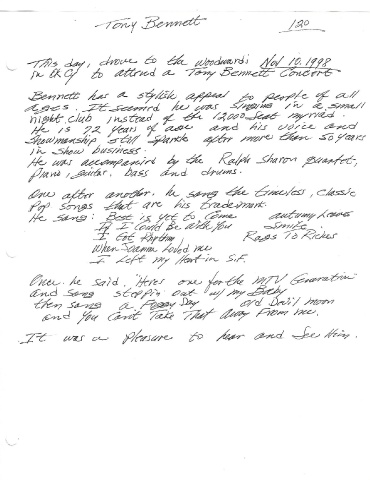 Tony Bennett
120
This day, drove to the Woodwards Nov 10, 1998
in OKCy to attend a Tony Bennett Concert
Bennett has a stylish appeal to people of all
ages. It seemed he was singing in a small
night club instead of the 12,000 seat myriad.
He is 72 years of age and his voice and
Showmanship still sparkle after more than 50 years
in show business.
He was accompanied by the Ralph Sharon quartet,
piano, guitar, bass and drums.
One after another, he sang the timeless, classic
Pop songs that are his trademark.
He sang: Best is yet to Come autumn Leaves
If I Could be with You Smile
I Got Rhythm Rags To Riches
When Joanna Loved me
I Left my Heart in S.F.
Once he said, Here's one for the MTV Generation
and sang steppin out w/ my Baby
then sang a Foggy Day old Devil moon
and You Can't Take That away From me.
It was a pleasure to hear and see Him.